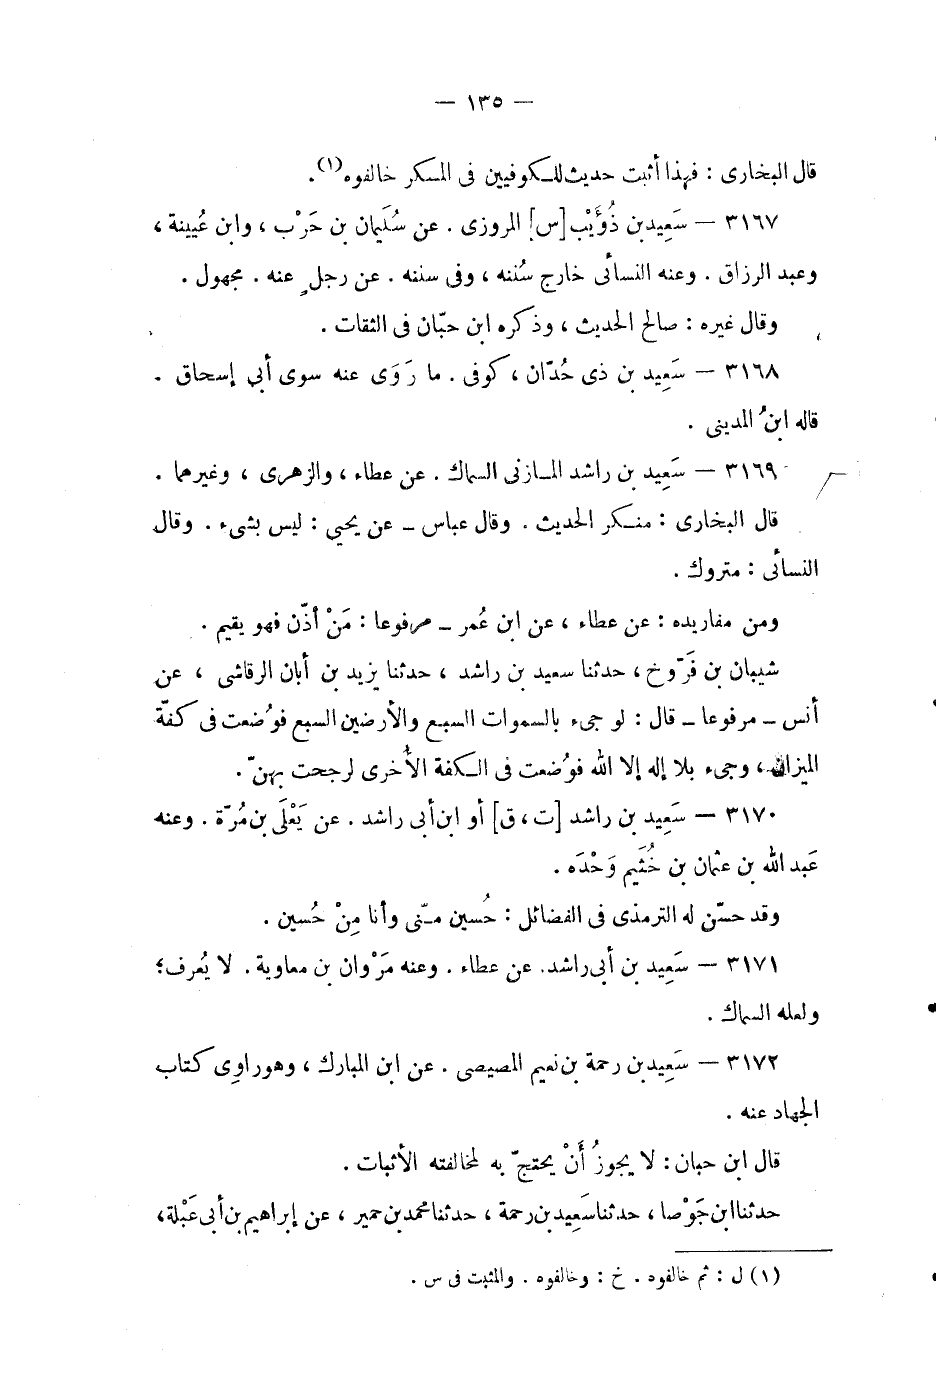 — ١٣٥ —
قال البخارى : فهذا أثبت حديث للكوفيين فى المسكر خالفوه(١).
٣١٦٧ — سَعِيد بن ذُؤَيْب [س] المروزى . عن سُلَيمان بن حَرْب ، وابن عُيينة ،
وعبد الرزاق . وعنه النسائى خارج سُننه ، وفى سننه . عن رجلٍ عنه . مجهول .
وقال غيره : صالح الحديث ، وذكره ابن حبّان فى الثقات .
٣١٦٨ — سَعِيد بن ذى حُدّان ، كوفى . ما رَوَى عنه سوى أبي إسحاق .
قاله ابنُ المدينى .
٣١٦٩ — سَعِيد بن راشد المازنى السماك . عن عطاء ، والزهرى ، وغيرهما .
قال البخارى : منكر الحديث . وقال عباس — عن يحيي : ليس بشىء . وقال
النسائى : متروك .
ومن مفاريده : عن عطاء ، عن ابن عُمر — مرفوعا : مَنْ أذّن فهو يقيم .
شيبان بن فَرّوخ ، حدثنا سعيد بن راشد ، حدثنا يزيد بن أبان الرقاشى ، عن
أنس — مرفوعا — قال : لو جىء بالسموات السبع والأرضين السبع فوُضعت فى كفّة
الميزان ، وجىء بلا إله إلا الله فوُضعت فى الكفة الأخرى لرجحت بهنّ .
٣١٧٠ — سَعِيد بن راشد [ت ، ق] أو ابن أبى راشد . عن يَعْلَى بن مُرّة . وعنه
عَبد الله بن عثمان بن خُثَيم وَحْدَه .
وقد حسّن له الترمذى فى الفضائل : حُسين منّى وأنا مِنْ حُسين .
٣١٧١ — سَعِيد بن أبى راشد . عن عطاء . وعنه مَرْوان بن معاوية . لا يُعرف ؛
ولعله السماك .
٣١٧٢ — سَعِيد بن رحمة بن نعيم المصيصى . عن ابن المبارك ، وهو راوى كتاب
الجهاد عنه .
قال ابن حبان : لا يجوزُ أَنْ يحتجّ به لمخالفته الأثبات .
حدثنا ابن جَوْصا ، حدثنا سَعِيد بن رحمة ، حدثنا محمد بن حمير ، عن إبراهيم بن أبى عَبْلة ،
(١) ل : ثم خالفوه . خ : وخالفوه . والمثبت فى س .